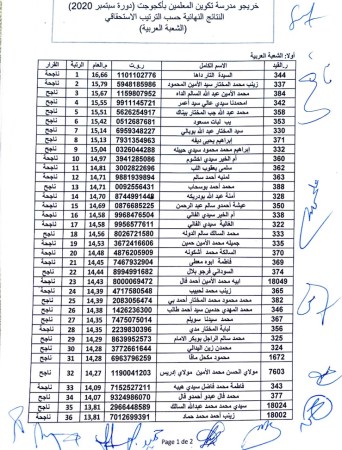 خريجو مدرسة تكوين المعلمين بأكجوجت (دورة سبتمبر 2020)
النتائج النهائية حسب الترتيب الاستحقاقي
(الشعبة العربية)
أولا: الشعبة العربية
ر.القيد الاسم الكامل ر.و.ت م.العام الرتبة القرار
344 السيدة التار داها 1101102776 16,66 1 ناجحة
337 زينب محمد المختار سيد الأمين المحمود 5948185986 15,79 2 ناجحة
384 محمد الأمين عبد الله السالم الداه 1159807952 15,67 3 ناجح
342 امحمدنا سيدي عالي سيد أعمر 9911145721 15,55 4 ناجح
358 محمد عبد الله جب المختار 5626254917 15,51 5 ناجح
353 بنات مسعود 0512687681 15,42 6 ناجحة
330 سيد المختار عبد الله 6959348227 15,14 7 ناجح
371 ابراهيم يحيى 7931354963 15,13 8 ناجح
332 ابراهيم محمد محمود سيدي 0326044288 15,04 9 ناجح
360 أم الخير سيدي 3941285086 14,97 10 ناجحة
336 سلمى يعقوب 3002822696 14,81 11 ناجحة
363 أمنيه أحمد سالم 9881939894 14,76 12 ناجحة
348 محمد أحمد بوسحاب 0092556431 14,71 13 ناجح
338 آمنة عبد الله 8744991448 14,70 14 ناجحة
350 عيشة أحمدو سالم عبد الرحمن 0876685225 14,69 15 ناجحة
354 أم الخير سيدي الغالي 9968476504 14,58 16 ناجحة
346 الغالية سيدي الغالي 9956577611 14,58 17 ناجحة
333 محمد السالك سالم الدوله 8026721580 14,56 18 ناجح
339 جميله محمد الأمين حمين 3672416606 14,53 19 ناجحة
370 السالكة محمد 4876205909 14,48 20 ناجحة
369 فاطمة محمد 7467932904 14,45 21 ناجحة
374 السوداني فرجو بلال 8994991682 14,44 22 ناجح
18049 ابيه الأمين أحمد فال 8000069472 14,43 23 ناجحة
365 زينب محمد لحبيب 4717580548 14,40 24 ناجحة
382 محمد محمود محمد المختار أحمد 2083056474 14,39 25 ناجح
346 محمد المهدي سيد أحمد طالب 1426236300 14,38 26 ناجح
367 محمد سيدنا سويلم 7475075014 14,35 27 ناجح
345 لبابة المختار مدي 2239830396 14,35 28 ناجحة
329 محمد سالم الراجل بوبكر الإمام 8639952573 14,29 29 ناجح
324 محمدن زين 3772661644 14,28 30 ناجح
1672 محمود مخحل مافا 6963796259 14,28 31 ناجح
7603 مولاي الحسن محمد الأمين مولاي إدريس 1190041203 14,27 32 ناجح
343 فاطمة محمد فاضل سيدي هيبه 7152527211 14,09 33 ناجحة
377 محمد فال عبدو أحمدو فال 9324986070 14,07 34 ناجح
18024 سيدي محمد محمد عبدالله السالك 2966448589 13,81 35 ناجح
18002 زينب أحمد محمد حماد 7012699391 13,81 36 ناجحة
Page 1 de 2